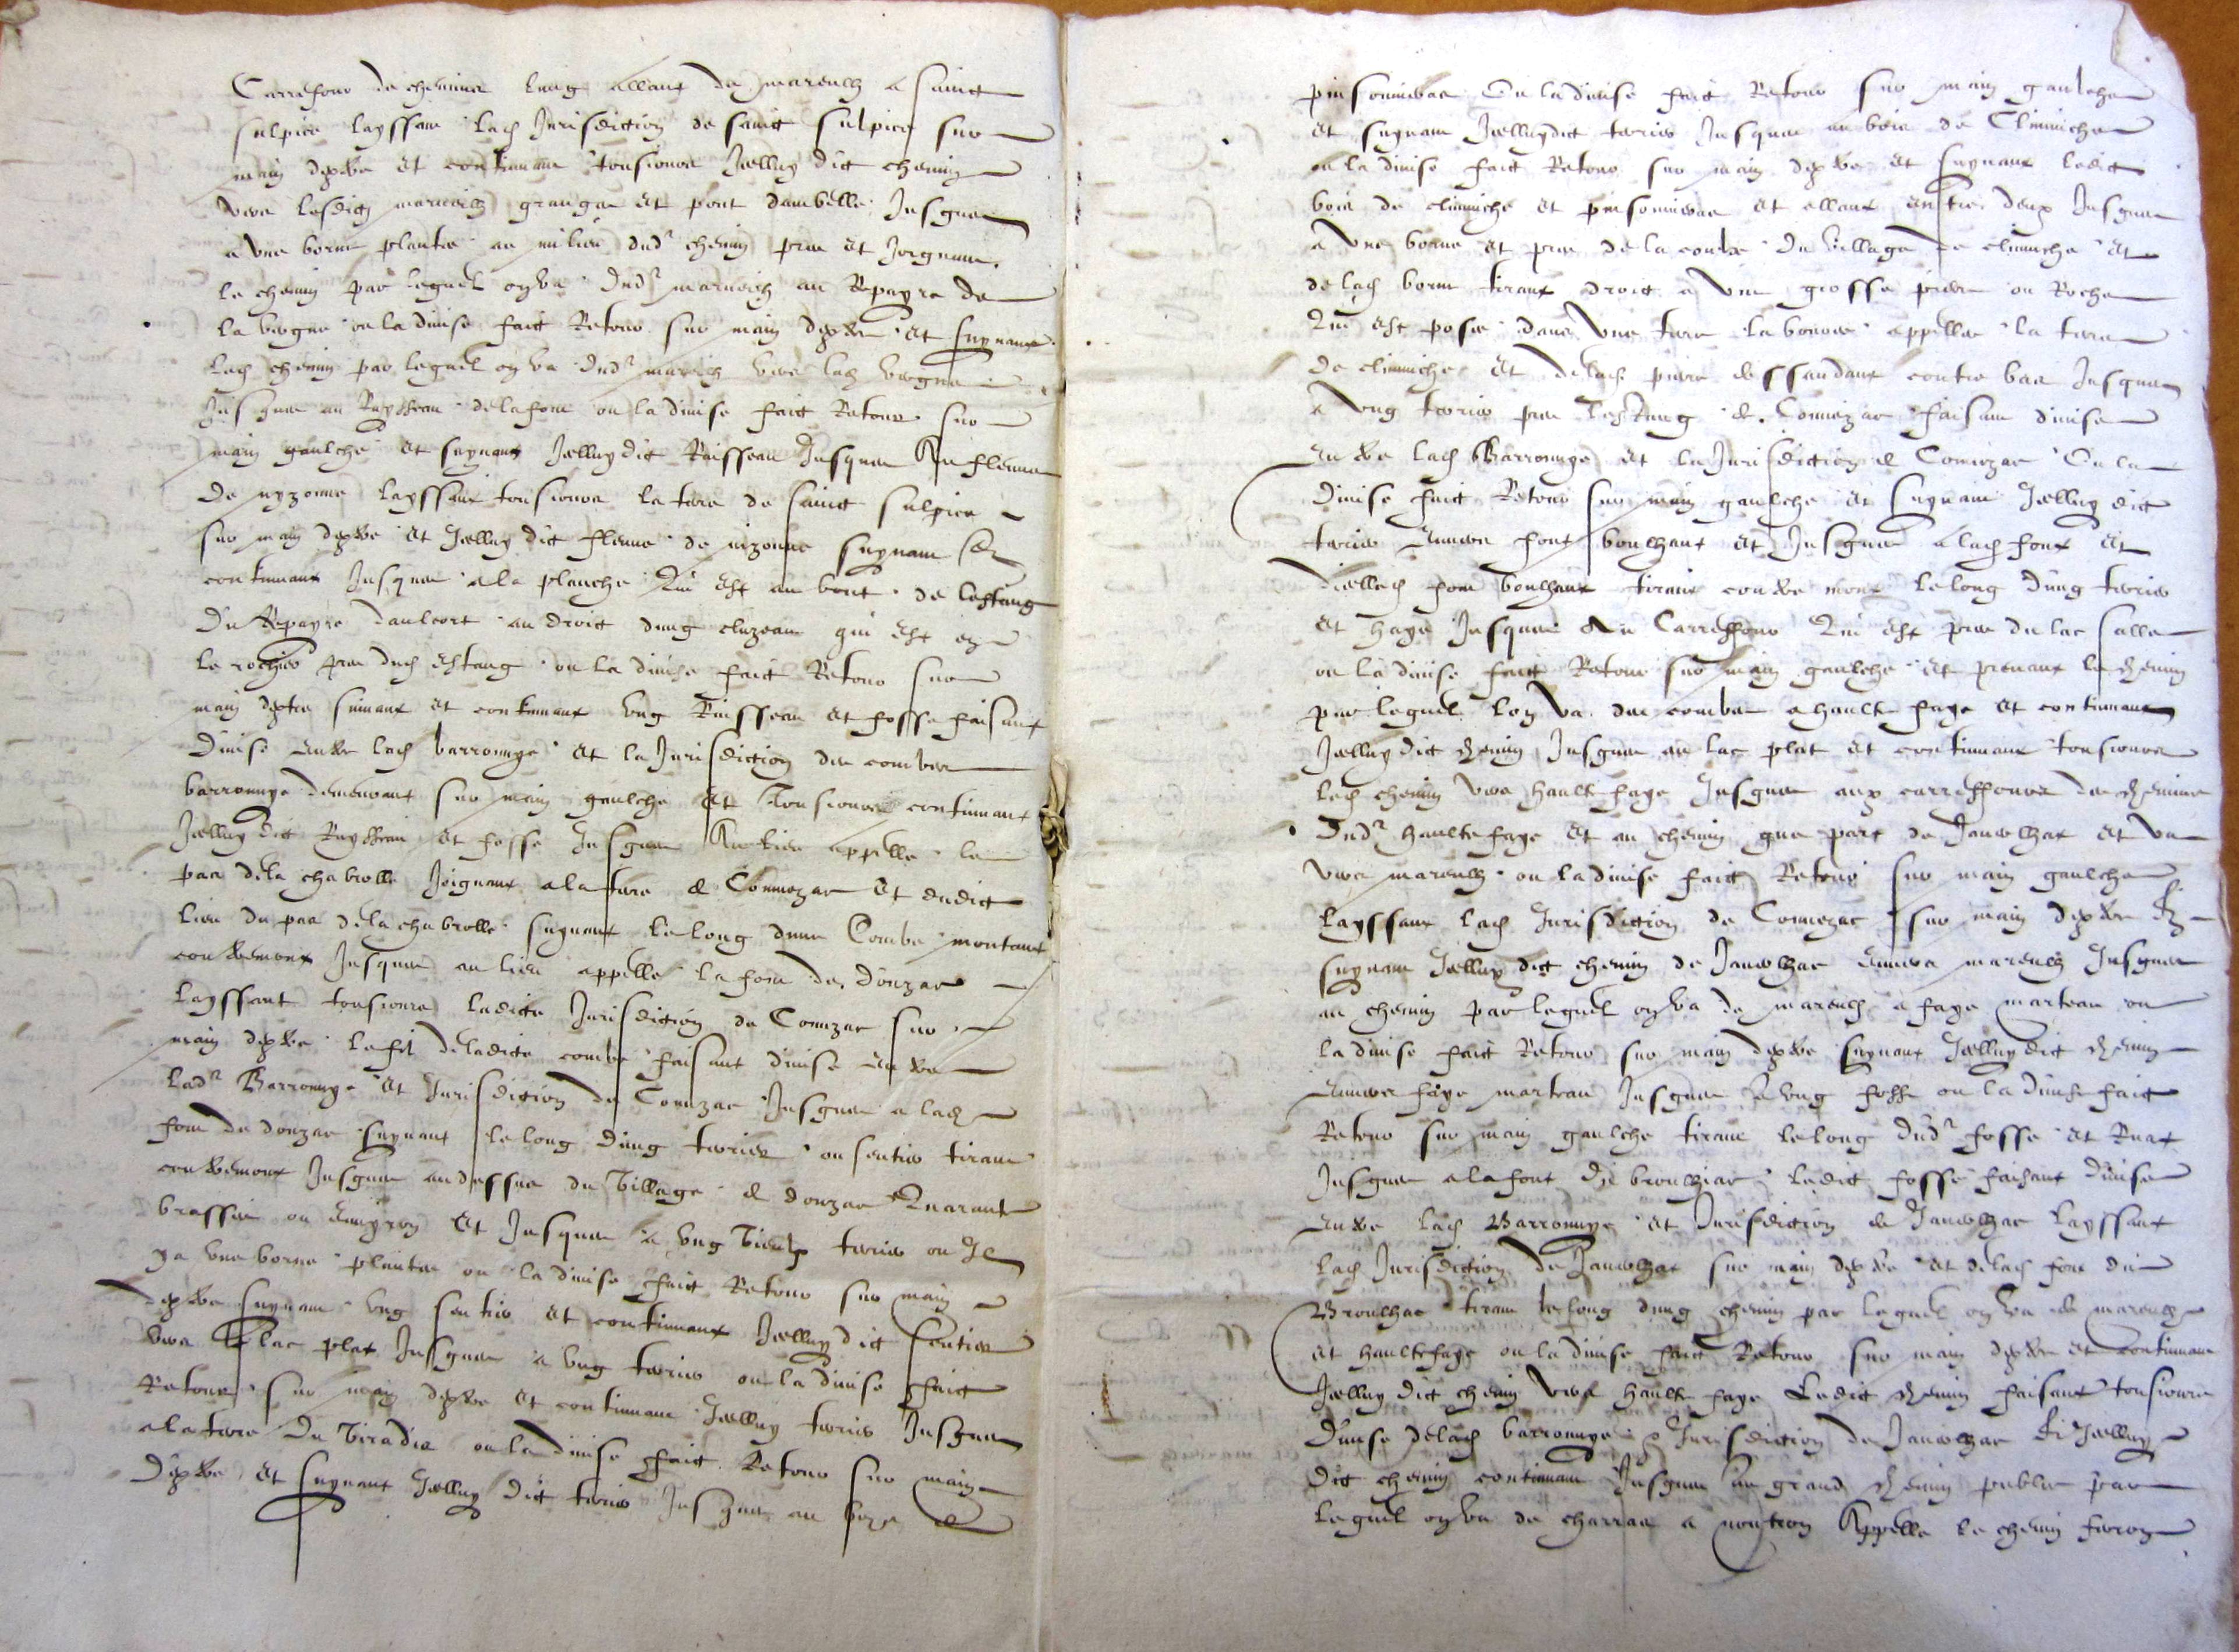 Carrefour de chemins lung allant de mareulh a sainct
sulpice layssant lad jurisdiction de sainct sulpice sur
main dextre et continuant tousiours Icelluy dict chemin
vers lesdictz marueilh grange et pont dambelle Jusques
a une borne plantee au milieu dudt chemin pres et Joignant
le chemin par lequel on va dudt marueilh au Repayre de
la vergne ou la divise faict Retour sur main dextre et suyvant
lad chemin par lequel on va dudt mareilh vers lad vergne
Jusques au Ruysseau de la font ou la divise faict Retour sur
main gaulche et suyvant Icelluy dict Ruisseau Jusques Au fleuve
de nyzonne layssant tousiours la terre de sainct sulpice
sur main dextre et Icelluy dict fleuve de nizonne suyvant Et
continuant Jusques a la planche Qui est au bout de lestang
du Repayre daulcort au droict dung cluzeau qui est en
le rochier pres dud estang ou la divise faict Retour sur
main dextre suivant et continuant ung Ruisseau et fosse faisant
divise entre lad barronnye et la Jurisdiction de combes
barronnye demeurant sur main gaulche et Tousiours continuant
Icelluy dict Ruysseau et fosse Jusques Au lieu appelle le
pas de la chabrolle Joignant a la terre de Connezac et dudict
lieu du pas de la chabrolle suyvant le long dune Combe montant
contremont Jusques au lieu appelle la font de donzac
layssant tousiours ladicte Jurisdiction de Conezac sur
main dextre le fil de ladicte combe faisant divise entre
ladt Barronnye et Jurisdiction de Conezac Jusques a lad
font de donzac suyvant le long dung terrier ou sentier tirant
contremont Jusques au dessus du Village de donzac Quarante
brasses ou environ Et Jusques a ung vieulx terrier ou Il
ya une borne plantee ou la divise faict Retour sur main
dextre suyvant ung sentier et continuant Icelluy dict sentier
vers le lac plat Jusques a ung terrier ou la divise faict
Retour sur main dextre et continuant Icelluy terrier Jusques
a la terre du Viradis ou la divise faict Retour sur main
dextre et suyvant Icelluy dict terrier Jusques au boys de
pinsonnieras Ou la divise faict Retour sur main gaulche
et suyvant Icelluydict terrier Jusques au bois de Clinuche
ou la divise faict Retour sur main dextre et suyvant ledict
bois de clinuche et pinsonnieras et allant entre deux Jusques
a une borne et pres de la combe du village de clinuche et
de lad borne tirant droict a une grosse pierre ou Roche
Qui est posee dans une terre labouree appellee la terre
de clinuche et de lad pierre dessandant contre bas Jusques
a ung terrier pres lestang de Connezac faisant divise
Entre lad Barronnye et la Jurisdiction de Conezac Ou la
divise faict Retour sur main gaulche et suyvant Icelluy dict
terrier Envers font boulhant et Jusques a lad font et
dicelle font boulhant tirant contre mont le long dung terrier
et haye Jusques Au Carreffour Qui est pres du lac salle
ou la divise faict Retour sur main gaulche et prenant le chemin
par lequel lon va de combes a haulte faye et continuant
Icelluy dict chemin Jusques au lac plat et continuant tousiours
led chemin vers haulte faye Jusques aux carreffours de chemins
Dudt haultefaye et au chemin que part de Jauvelhac et va
vers mareulh ou la divise faict Retour sur main gaulche
layssant lad Jurisdiction de Connezac sur main dextre Et
suyvant Icelluy dict chemin de Jauvelhac Envers mareulh Jusques
au chemin par lequel on va de mareulh a faye marteau ou
la divise faict Retour sur main dextre suyvant Icelluy dict chemin
Envers faye marteau Jusques a ung fosse ou la divise faict
Retour sur main gaulche tirant le long dudt fosse et
Jusques a la font du broulhac ledict fosse faisant divise
Entre lad Barronnye et Jurisdiction de Jauvelhac layssant
lad Jurisdiction de Jauvelhac sur main dextre et de lad font du
Broulhac tirant le long dung chemin par lequel on va de mareulh
et haultefaye ou la divise faict Retour sur main dextre et continuant
Icelluy dict chemin vers haulte faye Ledict chemin faisant tousiours
Divise de lad barronnye Jurisdiction de Jauvelhac Et Icelluy
dict chemin continuant Jusques au grand chemin public par
lequel on va de charras a nontron Appelle le chemin ferron